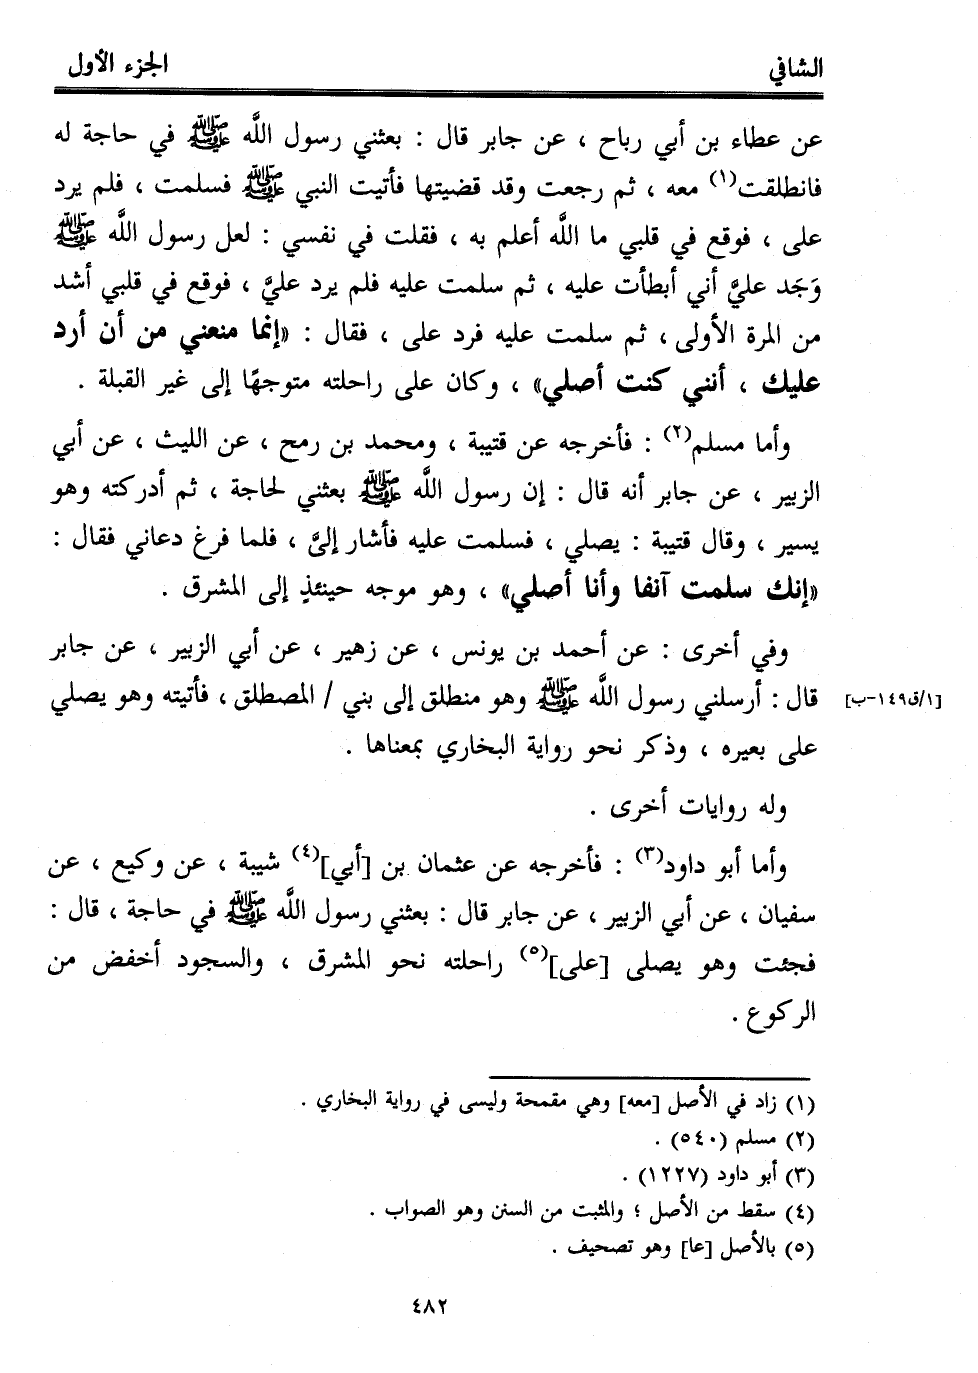 الشافي الجزء الأول
عن عطاء بن أبي رباح ، عن جابر قال : بعثني رسول اللَّه ﷺ في حاجة له
فانطلقت(١) معه ، ثم رجعت وقد قضيتها فأتيت النبي ﷺ فسلمت ، فلم يرد
على ، فوقع في قلبي ما اللَّه أعلم به ، فقلت في نفسي : لعل رسول اللَّه ﷺ
وَجَد عليَّ أني أبطأت عليه ، ثم سلمت عليه فلم يرد عليَّ ، فوقع في قلبي أشد
من المرة الأولى ، ثم سلمت عليه فرد على ، فقال : «إنما منعني من أن أرد
عليك ، أنني كنت أصلي» ، وكان على راحلته متوجهًا إلى غير القبلة .
وأما مسلم(٢) : فأخرجه عن قتيبة ، ومحمد بن رمح ، عن الليث ، عن أبي
الزبير ، عن جابر أنه قال : إن رسول اللَّه ﷺ بعثني لحاجة ، ثم أدركته وهو
يسير ، وقال قتيبة : يصلي ، فسلمت عليه فأشار إليَّ ، فلما فرغ دعاني فقال :
«إنك سلمت آنفا وأنا أصلي» ، وهو موجه حينئذٍ إلى المشرق .
وفي أخرى : عن أحمد بن يونس ، عن زهير ، عن أبي الزبير ، عن جابر
قال : أرسلني رسول اللَّه ﷺ وهو منطلق إلى بني / المصطلق ، فأتيته وهو يصلي [١/ق١٤٩-ب]
على بعيره ، وذكر نحو رواية البخاري بمعناها .
وله روايات أخرى .
وأما أبو داود(٣) : فأخرجه عن عثمان بن [أبي](٤) شيبة ، عن وكيع ، عن
سفيان ، عن أبي الزبير ، عن جابر قال : بعثني رسول اللَّه ﷺ في حاجة ، قال :
فجئت وهو يصلى [على](٥) راحلته نحو المشرق ، والسجود أخفض من
الركوع .
(١) زاد في الأصل [معه] وهي مقمحة وليسى في رواية البخاري .
(٢) مسلم (٥٤٠) .
(٣) أبو داود (١٢٢٧) .
(٤) سقط من الأصل ؛ والمثبت من السنن وهو الصواب .
(٥) بالأصل [عا] وهو تصحيف .
٤٨٢